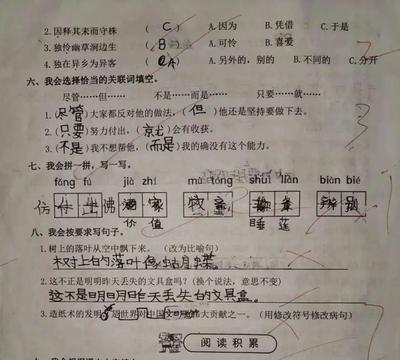 2.因释其耒而守株 ( C ) A.因为 B.凭借 C.于是
3.独怜幽草涧边生 ( B ) A.可怜 B.喜爱
4.独在异乡为异客 ( A ) A.另外的，别的 B.不同的 C.分开
六、我会选择恰当的关联词填空。
尽管……但…… 不是……而是…… 只要……就……
1.(尽管)大家都反对他的做法，(但)他还是坚持要做下去。
2.(只要)努力付出，(京尤)会有收获。
3.(不是)我不想帮他，(而是)我的确没有这个能力。
七、我会拼一拼，写一写。
fǎng fú jià zhí mù tóng shuì lián biàn bié
仿 佛
价 值 睡 莲
八、我会按要求写句子。
1.树上的落叶从空中飘下来。（改为比喻句）
树上的落叶像蝴蝶。
2.这不正是明明昨天丢失的文具盒吗？（换个说法，意思不变）
这不是明明昨天丢失的文具盒。
3.造纸术的发明 世界 大贡献之一。（用修改符号修改病句）
阅读积累